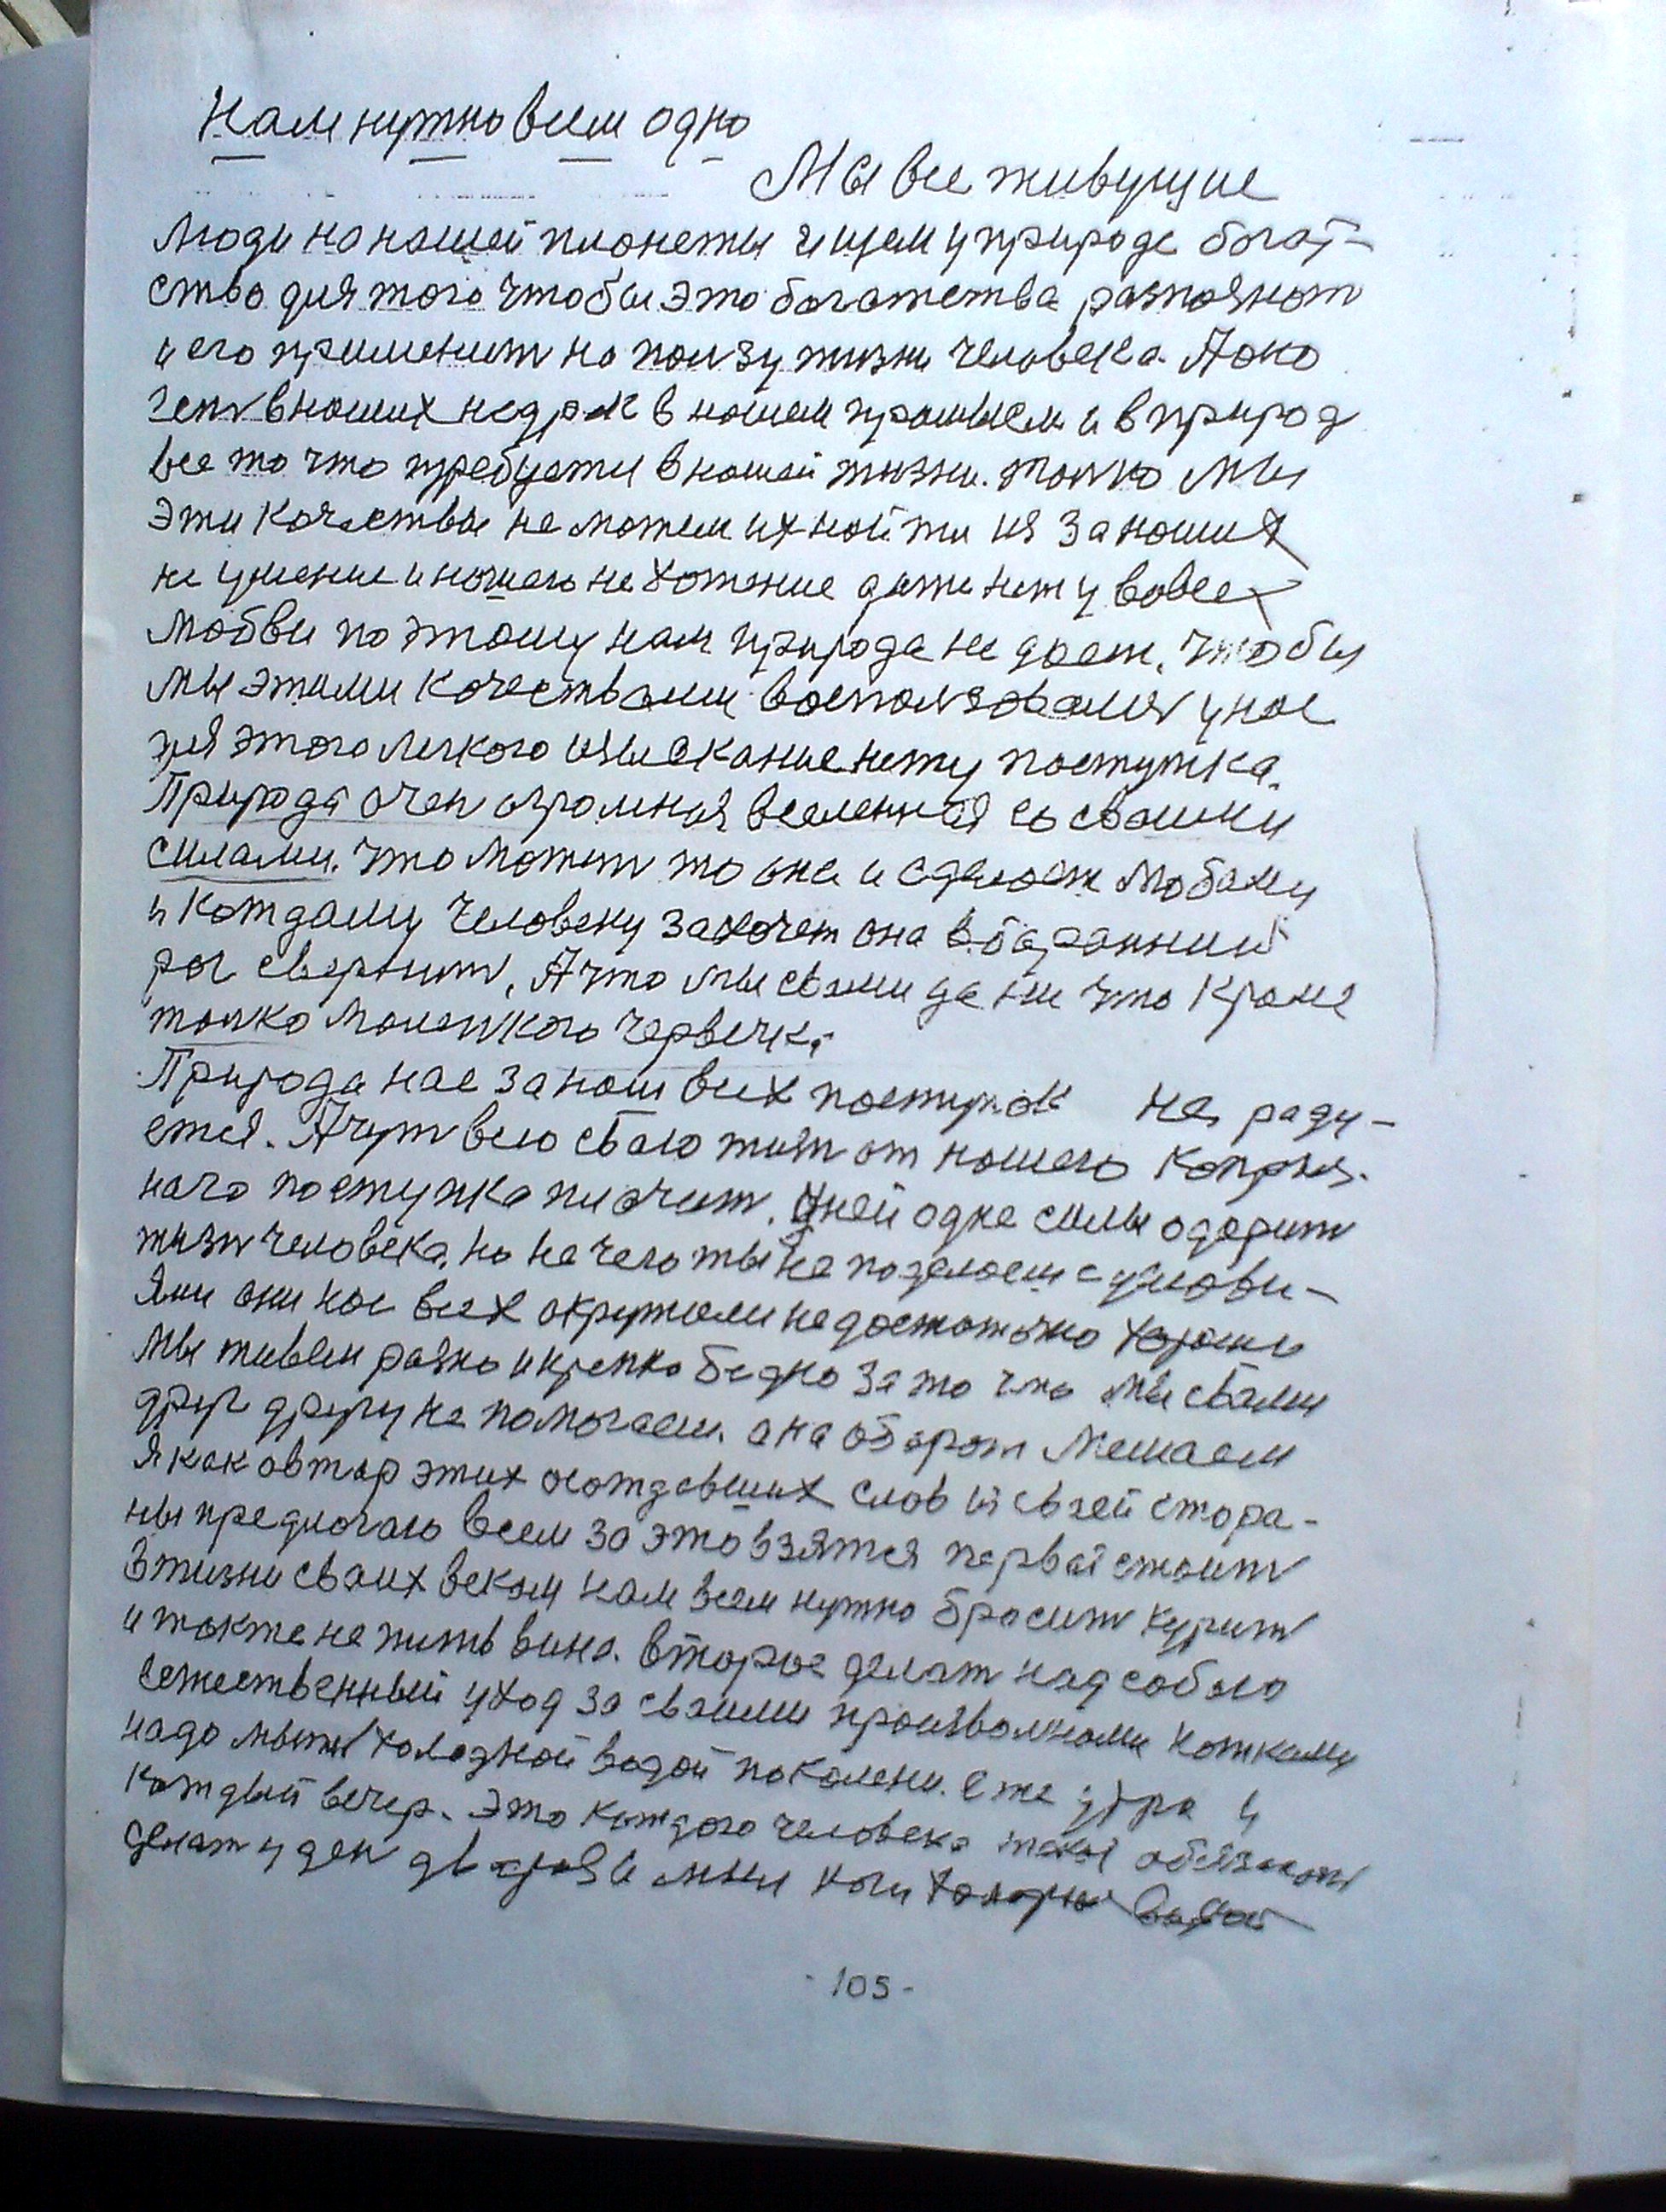 Нам нужно всем одно
Мы все живущие
люди на нашей планеты ищем у природе богат-
ство для того чтобы это богатства распознат
и его применит на ползу жизни человека. А оно
ест в наших недрах в нашем промысле и в природ
все то что требуется в нашей жизни. толко мы
эти качества не можем их найти из за наших
не умение и нашего не хотение даже нет у вовсех
любви по этому нам природа не дает. чтобы
мы этими качествами воспользовались у нас
для этого легкого изыскание нету поступка.
Природа очен огромная вселенная со своими
силами. что может то она и сделает любому
и каждаму человеку захочет она в баранний
рог свернит. А что мы свами да ни что кроме
толко маленкого червячка
Природа нас за наш всех поступок не раду-
ется. А чут всю сваю жизн от нашего капризн-
наго поступка плачит. У ней одне силы одарит
жизн человека. но не чего ты не поделаеш с услови-
ями они нас всех окружали недостаточно хорошо
Мы живем разно и крепко бедно за то что мы свами
друг другу не помогаем. а на оборот мешаем
Я как автор этих осождавших слов из своей стора-
ны предлогаю всем за это взятся первай стоит
в жизни своих веком нам всем нужно бросит курит
и также не пить вина. второе делат над собаю
естественный уход за своими произволными ножками
надо мыть холодной водой по колени. еже утра и
каждый вечер. Это каждого человека така обязаност
делат у ден два раза мыл ноги холодны водой
- 105 -